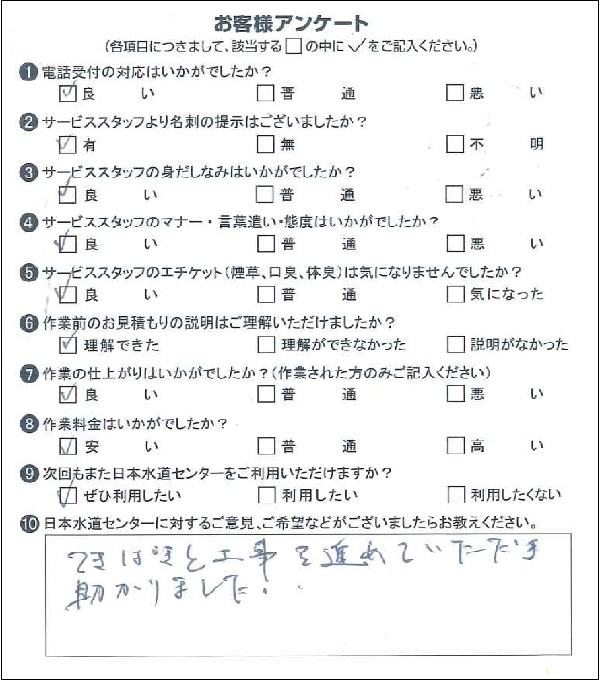 お客様アンケート
(各項目につきまして、該当する□の中に✓をご記入ください。)
❶電話受付の対応はいかがでしたか?
☑良い □普通 □悪い
❷サービススタッフより名刺の提示はございましたか?
☑有 □無 □不明
❸サービススタッフの身だしなみはいかがでしたか?
☑良い □普通 □悪い
❹サービススタッフのマナー・言葉遣い・態度はいかがでしたか?
☑良い □普通 □悪い
❺サービススタッフのエチケット(煙草、口臭、体臭)は気になりませんでしたか?
☑良い □普通 □気になった
❻作業前のお見積もりの説明はご理解いただけましたか?
☑理解できた □理解ができなかった □説明がなかった
❼作業の仕上がりはいかがでしたか?(作業された方のみご記入ください)
☑良い □普通 □悪い
❽作業料金はいかがでしたか?
☑安い □普通 □高い
❾次回もまた日本水道センターをご利用いただけますか?
☑ぜひ利用したい □利用したい □利用したくない
❿日本水道センターに対するご意見、ご希望などがございましたらお教えください。
てきぱきと工事を進めていただき
助かりました。